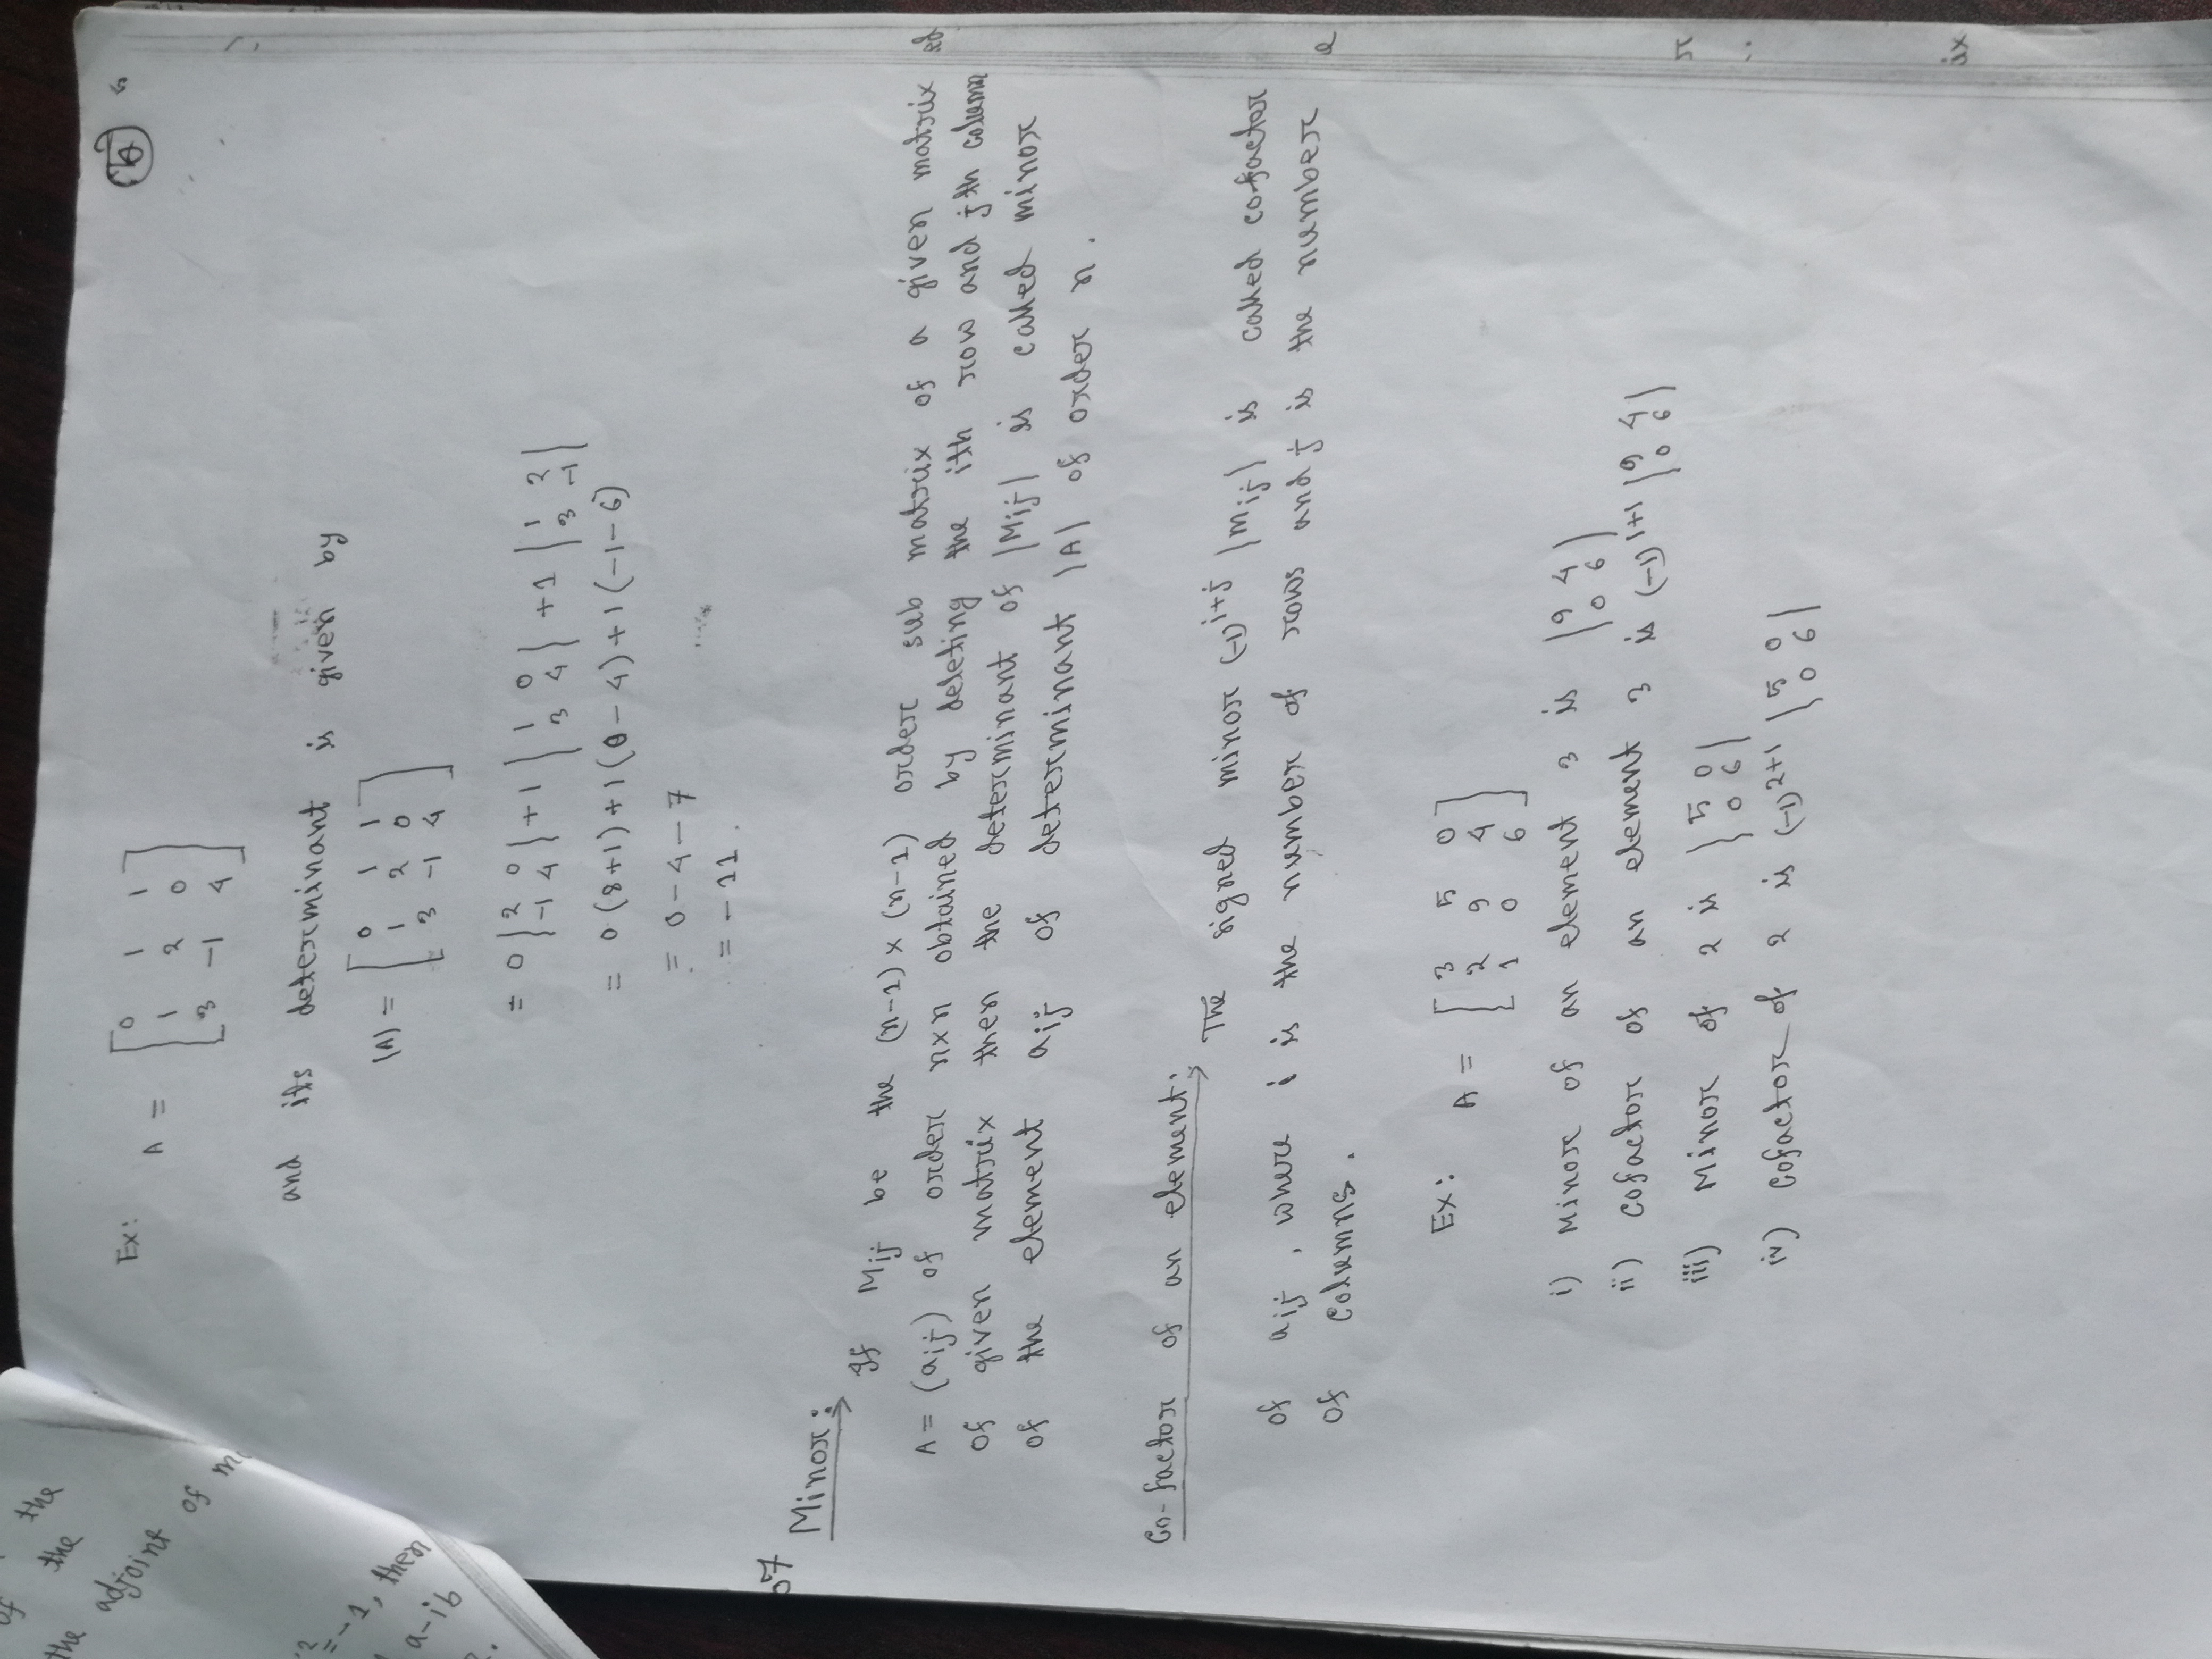 of the
the
the adjoint of
2 = -1, then
a-ib
Ex: A = [0 1 1
1 2 0
3 -1 4]
and its determinant is given by
|A| = [0 1 1
1 2 0
3 -1 4]
= 0 |2 0 -1 4| + 1 |1 0 3 4| + 1 |1 2 3 -1|
= 0(8+1)+1(0-4)+1(-1-6)
= 0-4-7
= -11.
07
Minor:
If Mij be the (n-1)×(n-1) order sub matrix of a given matrix
A = (aij) of order n×n obtained by deleting the ith row and jth column
of given matrix then the determinant of |Mij| is called minor
of the element aij of determinant |A| of order n.
Co-factor of an element:
The signed minor (-1)^i+j |mij| is called cofactor
of aij, where i is the number of rows and j is the number
of columns.
Ex: A = [3 5 0
2 9 4
1 0 6]
i) Minor of an element 3 is |9 4 0 6|
ii) Cofactor of an element 3 is (-1)^1+1 |9 4 0 6|
iii) Minor of 2 is |5 0 0 6|
iv) Cofactor of 2 is (-1)^2+1 |5 0 0 6|